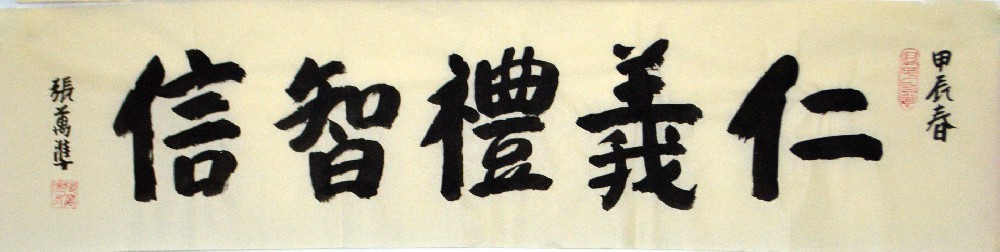 甲辰春
仁義禮智信
張萬準